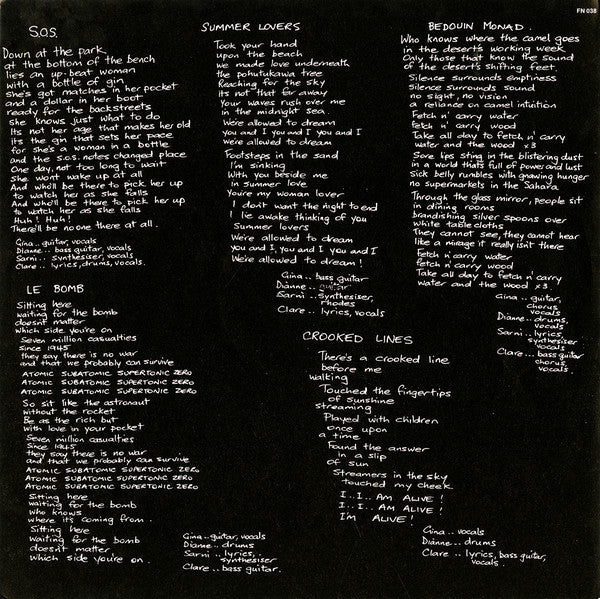 FN 038
S.O.S.
Down at the park
at the bottom of the bench
lies an up-beat woman
with a bottle of gin
she's got matches in her pocket
and a dollar in her boot
ready for the backstreets
she knows just what to do
Its not her age that makes her old
it's the gin that sets her pace
for she's a woman in a bottle
and the s.o.s. notes changed place
One day, not too long to wait
She wont wake up at all
And who'll be there to pick her up
to watch her as she falls
And who'll be there to pick her up
to watch her as she falls
Huh! Huh!
There'll be no one there at all.
Gina.. guitar, vocals
Dianne.. bass guitar, vocals
Sarni.. synthesiser, vocals
Clare.. lyrics, drums, vocals.
LE BOMB
Sitting here
waiting for the bomb
doesn't matter
which side you're on
Seven million casualties
since 1945
they say there is no war
and that we probably can survive
ATOMIC SUBATOMIC SUPERTONIC ZERO
ATOMIC SUBATOMIC SUPERTONIC ZERO
ATOMIC SUBATOMIC SUPERTONIC ZERO
So sit like the astronaut
without the rocket
Be as the rich but
with love in your pocket
Seven million casualties
Since 1945
they say there is no war
and that we probably can survive
ATOMIC SUBATOMIC SUPERTONIC ZERO
ATOMIC SUBATOMIC SUPERTONIC ZERO
ATOMIC SUBATOMIC SUPERTONIC ZERO
Sitting here
waiting for the bomb
who knows
where it's coming from.
Sitting here
Waiting for the bomb
doesn't matter
Which side you're on.
Gina.. guitar, vocals
Dianne.. drums
Sarni.. lyrics,
synthesiser
Clare.. bass guitar.
SUMMER LOVERS
Took your hand
upon the beach
we made love underneath
the pohutukawa tree
Reaching for the sky
Its not that far away
Your waves rush over me
in the midnight sea
Were allowed to dream
you and I you and I you and I
we're allowed to dream
Footsteps in the sand
I'm sinking
With you beside me
in summer love
You're my woman lover
I don't want the night to end
I lie awake thinking of you
Summer lovers
We're allowed to dream
you and I, you and I you and I
We're allowed to dream!
Gina.. bass guitar
Dianne.. guitar
Sarni.. synthesiser,
Rhodes
Clare.. lyrics, vocals
CROOKED LINES
There's a crooked line
before me
walking
Touched the fingertips
of sunshine
streaming
Played with children
once upon
a time
Found the answer
in a slip
of sun
Streamers in the sky
touched my cheek
I.. I.. AM ALIVE!
I.. I.. AM ALIVE!
I'M ALIVE!
Gina.. vocals
Dianne.. drums
Clare.. lyrics, bass guitar,
vocals.
BEDOUIN MONAD.
Who knows where the camel goes
in the desert's working week
Only those that know the sound
of the desert's shifting feet.
Silence surrounds emptiness
Silence surrounds sound
no sight, no vision
a reliance on camel intuition
Fetch n' carry water
fetch n' carry wood
Take all day to fetch n' carry
water and the wood x3
Sore lips sting in the blistering dust
in a world thats full of power and lust
Sick belly rumbles with gnawing hunger
no supermarkets in the Sahara
Through the glass mirror, people sit
in dining rooms
brandishing silver spoons over
white table cloths
They cannot see, they cannot hear
like a mirage it really isn't there
Fetch n' carry water
fetch n' carry wood
Take all day to fetch n' carry
water and the wood x3.
Gina.. guitar,
chorus
vocals
Dianne.. drums,
vocals
Sarni.. lyrics,
synthesiser
vocals
Clare.. bass guitar
chorus,
vocals.